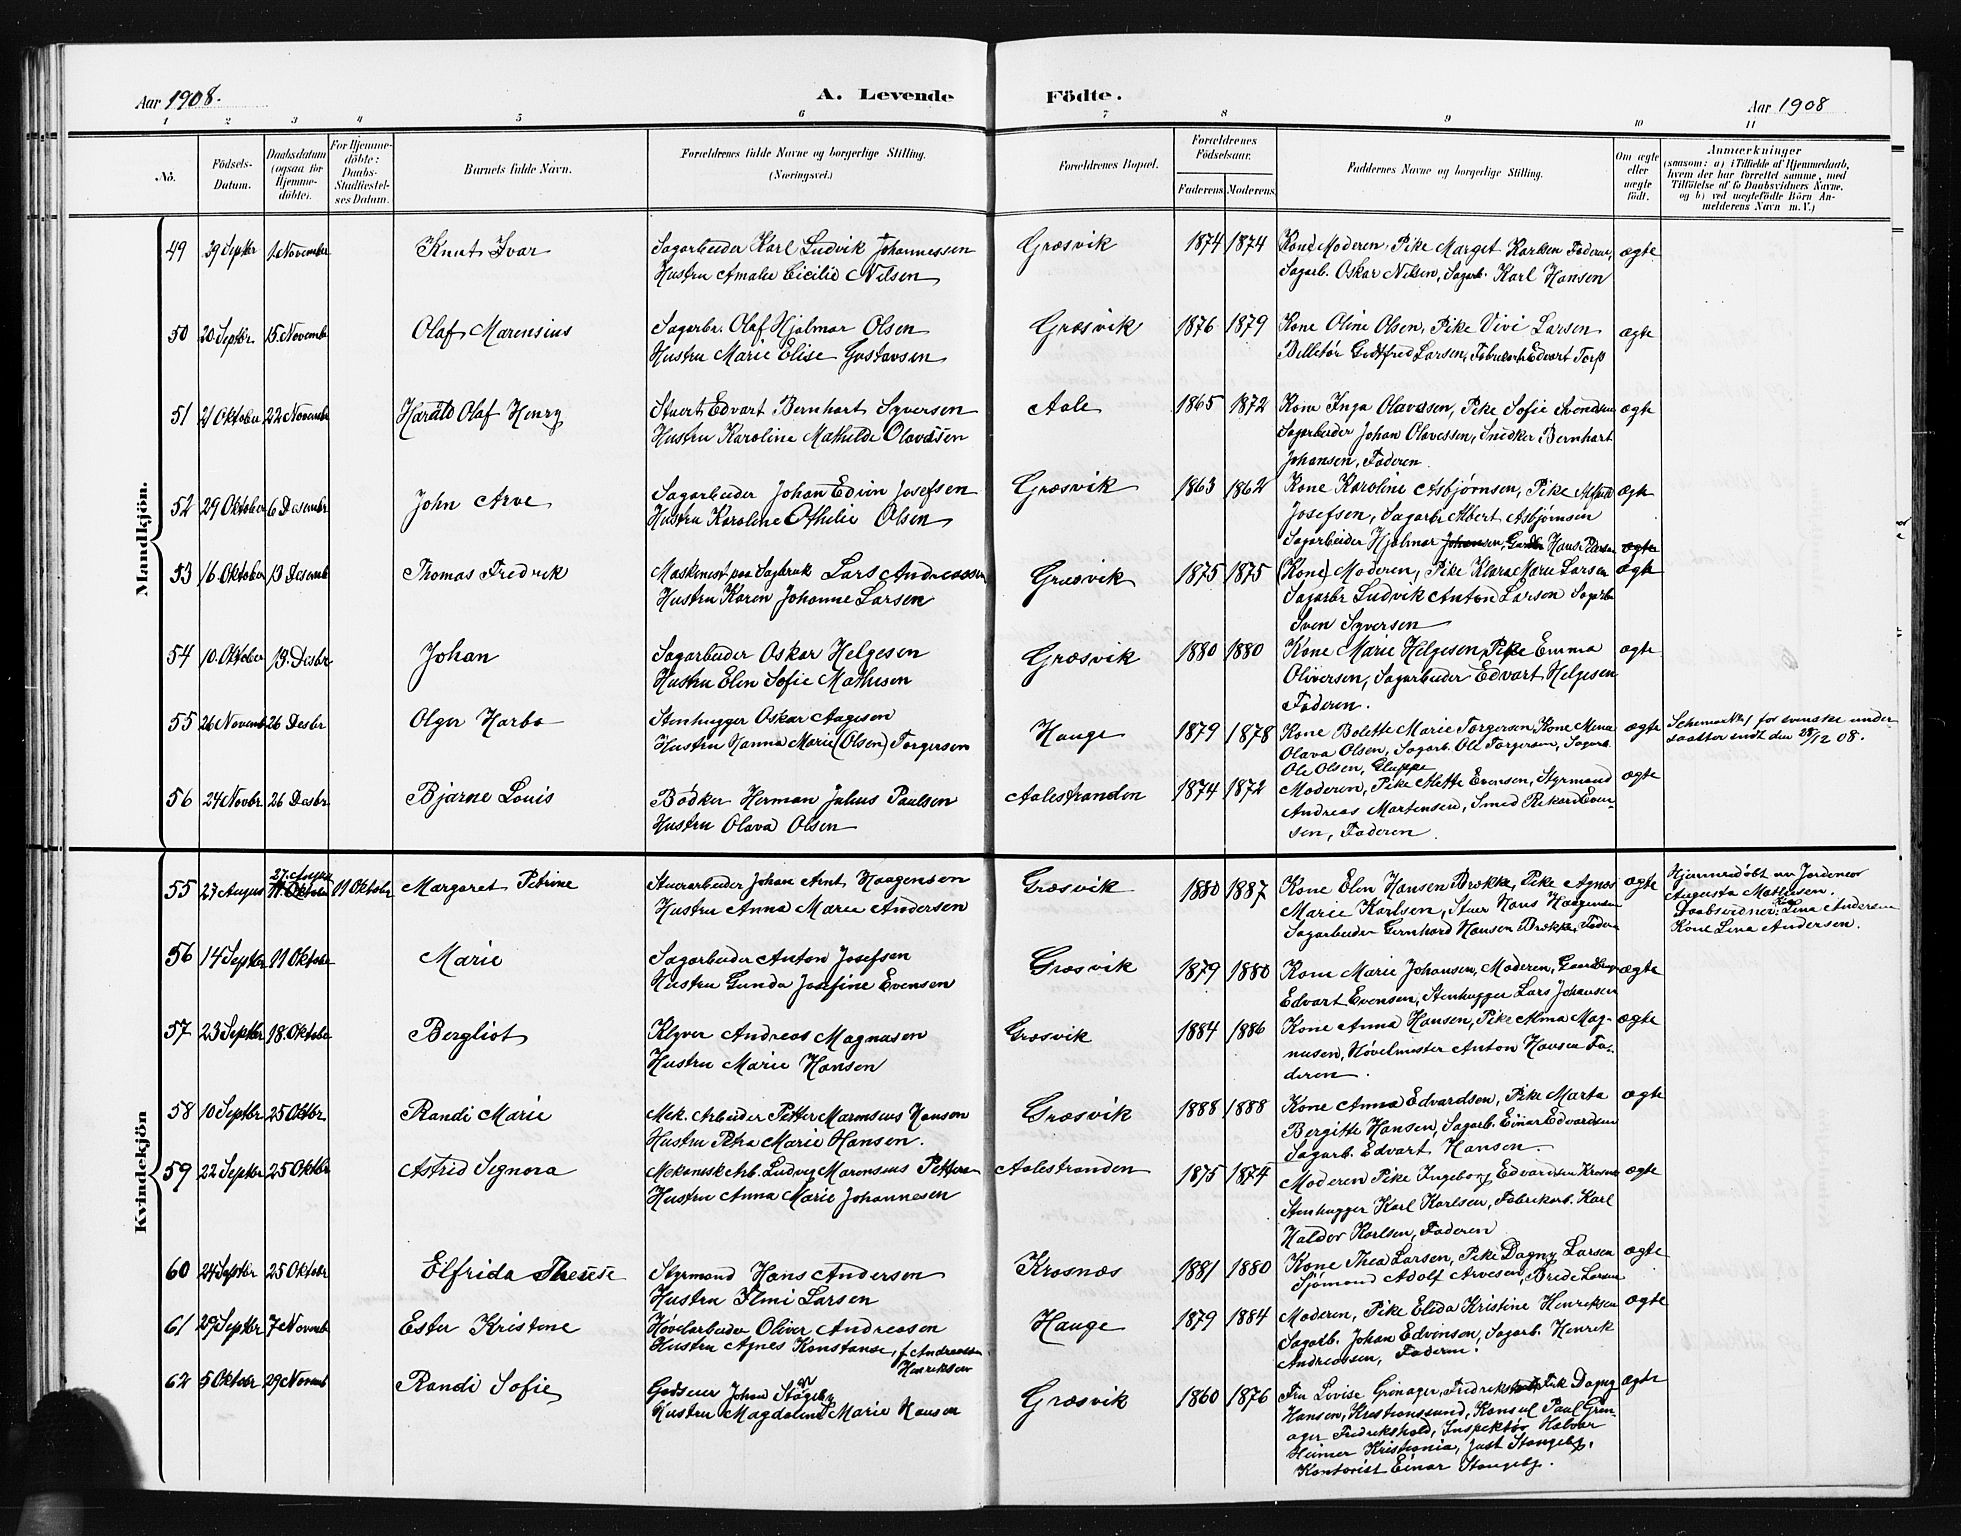 Aar 1908.
A. Levende
Födte.
Aar 1908
1 2 3 4 5 6 7 8 9 10 11
Nö.
Födsels-
Datum.
Daabsdatum
(ogsaa for
Hjemme-
döbte).
For Hjemme-
döbte:
Daabs-
Stadfæstel-
ses Datum.
Barnets fulde Navn.
Forældrenes fulde Navne og borgerlige Stilling.
(Næringsvei.)
Forældrenes Bopæl.
Forældrenes
Födselsaar.
Faderens. Moderens.
Faddernes Navne og borgerlige Stilling.
Om ægte
eller
uægte
födt.
Anmærkninger
(saasom: a) i Tilfælde af Hjemmedaab,
hvem der har forrettet samme, med
Tilföielse af to Daabsvidners Navne,
og b) ved uægtefödte Börn An-
melderens Navn m. V.)
Mandkjön.
49 29 Septbr 1 November Knut Ivar
Sagarbeider Karl Ludvik Johannessen
Hustru Amalie Cicilie Nilsen
Græsvik 1874 1874
Kone Moderen, Pike Marget Karlsen Faderen,
Sagarb. Oskar Nilsen, Sagarb. Karl Hansen
ægte
50 20 Septbr. 15 Novemb Olaf Marensius
Sagarbr. Olaf Hjalmar Olsen
Hustru Marie Elise Gustavsen
Græsvik 1876 1879
Kone Oline Olsen, Pike Vivi Larsen
Billetör Gottfred Larsen, Fabrikarb Edvart Torp
ægte
51 21 Oktober 22 Novembr Harald Olaf Henry
Stuert Edvart Bernhart Syversen
Hustru Karoline Mathilde Olavesen
Aale 1865 1872
Kone Inga Olavesen, Pike Sofie Svendsen
Sagarbeider Johan Olavessen, Snedker Bernhart
Johansen, Faderen.
ægte
52 29 Oktober 6 Desembr. John Arve
Sagarbeider Johan Edvin Josefsen
Hustru Karoline Othilie Olsen
Græsvik 1863 1862
Kone Karoline Asbjørnsen, Pike
Josefsen, Sagarbr Albert Asbjørnsen
Sagarbeider Hjalmar Johansen, Hans Petersen
ægte
53 16 Oktober 13 Desemb Thomas Fredrik
Maskinest paa Sagbruk Lars Andreassen
Hustru Karen Johanne Larsen
Græsvik 1875 1875
(Kone) Moderen, Pike Klara Marie Larsen
Sagarbr Ludvik Anton Larsen Sagarb
Sven Syversen
ægte
54 10. Oktober 13. Desbr Johan
Sagarbeider Oskar Helgesen
Hustru Elen Sofie Mathisen
Græsvik 1880 1880
Kone Marie Helgesen, Pike Emma
Oliversen, Sagarbeider Edvart Helgesen
Faderen.
ægte
55 26 Novemb 26 Desbr Olger Harbo
Stenhugger Oskar Aagesen
Hustru Hanna Marie (Olsen) Torgersen
Hauge 1879 1878
Kone Bolette Marie Torgersen, Kone Mina
Olava Olsen, Sagarb. Ole Torgersen, Sagarb.
Ole Olsen, Gluppe
ægte
Schema No 1 for svenske under
saatter sendt den 28/12 08.
56 24 Novbr. 26 Desbr Bjarne Louis
Bødker Herman Julius Paulsen
Hustru Olava Olsen
Aalestranden 1874 1872
Moderen, Pike Mette Evensen, Styrmand
Andreas Martensen, Smed Rikard Even-
sen, Faderen.
ægte
Kvindekjön
55 27 August 27. August 11. Oktober 11 Oktobr Margaret Petrine
Stuerarbeider Johan Arnt Haagensen
Hustru Anna Marie Andersen
Græsvik 1880 1887
Kone Elen Hansen Brokke, Pike Agnes
Marie Karlsen, Stuer Hans Haagensen
Sagarbeider Gernhard Hansen Brokke, Fader
ægte
Hjemmedøbt av Jordemor
Augusta Mathisen.
Daabsvidner: Lina Andersen
Kone Lina Andersen.
56 14 Septbr 11 Oktober Marie
Sagarbeider Anton Josefsen
Hustru Gunda Josefine Evensen
Græsvik 1879 1880
Kone Marie Johansen, Moderen,
Edvart Evensen, Stenhugger Lars Johansen
ægte
57 23 Septbr 18. Oktober Bergliot
Klyver Andreas Magnusen
Hustru Marie Hansen
Græsvik 1884 1886
Kone Anna Hansen, Pike Alma Mag-
nusen, Høvelmester Anton Hansen Fa-
deren.
ægte
58 10 Septbr 25 Oktbr. Randi Marie
Mek. Arbeider Petter Marensius Hansen
Hustru Petra Marie Hansen.
Græsvik 1888 1888
Kone Anna Edvardsen, Pike Marta
Bergitte Hansen, Sagarb. Einar Edvardsen
Sagarb. Edvart Hansen.
ægte
59 22 Septbr 25 Oktbr Astrid Segnora
Mekanisk Arb. Ludvig Marensius Pettersen
Hustru Anna Marie Johannesen
Aalestranden 1875 1874
Moderen Pike Ingeborg Edvardsen Krosnes
Stenhugger Karl Karlsen, Fabrikarb. Karl
Haldor Karlsen, Faderen
ægte
60 24 Septbr 25 Oktobr Elfrida Therese
Styrmand Hans Andersen
Hustru Elmi Larsen
Krosnæs 1881 1880
Kone Thea Larsen, Pike Dagny Larsen
Sjømand Adolf Arvesen, Brede Larsen
ægte
61 29 Septbr 7 Novemb Ester Kristine
Høvelarbeider Oliver Andreasen
Hustru Agnes Konstanse, f. Andreassen
Henriksen
Hauge 1879 1884
Moderen, Pike Elida Kristine Henriksen
Sagarb. Johan Edvinsen, Sagarb. Henrik
Andreassen, Faderen.
ægte
62 5 Oktobr 29 Novemb Randi Sofie
Godseier Johan Stangeby
Hustru Magdaline Marie Hansen
Græsvik 1860 1876
Fru Lovise Grinager, Fredrikshald Frk Dagny
Hansen, Kristianssund, Konsul Paul Grin-
ager Fredrikshald, Inspektør Halvar
Heimer Kristiania, Just Stangeby,
Kontorist Einar Stangeby.
ægte